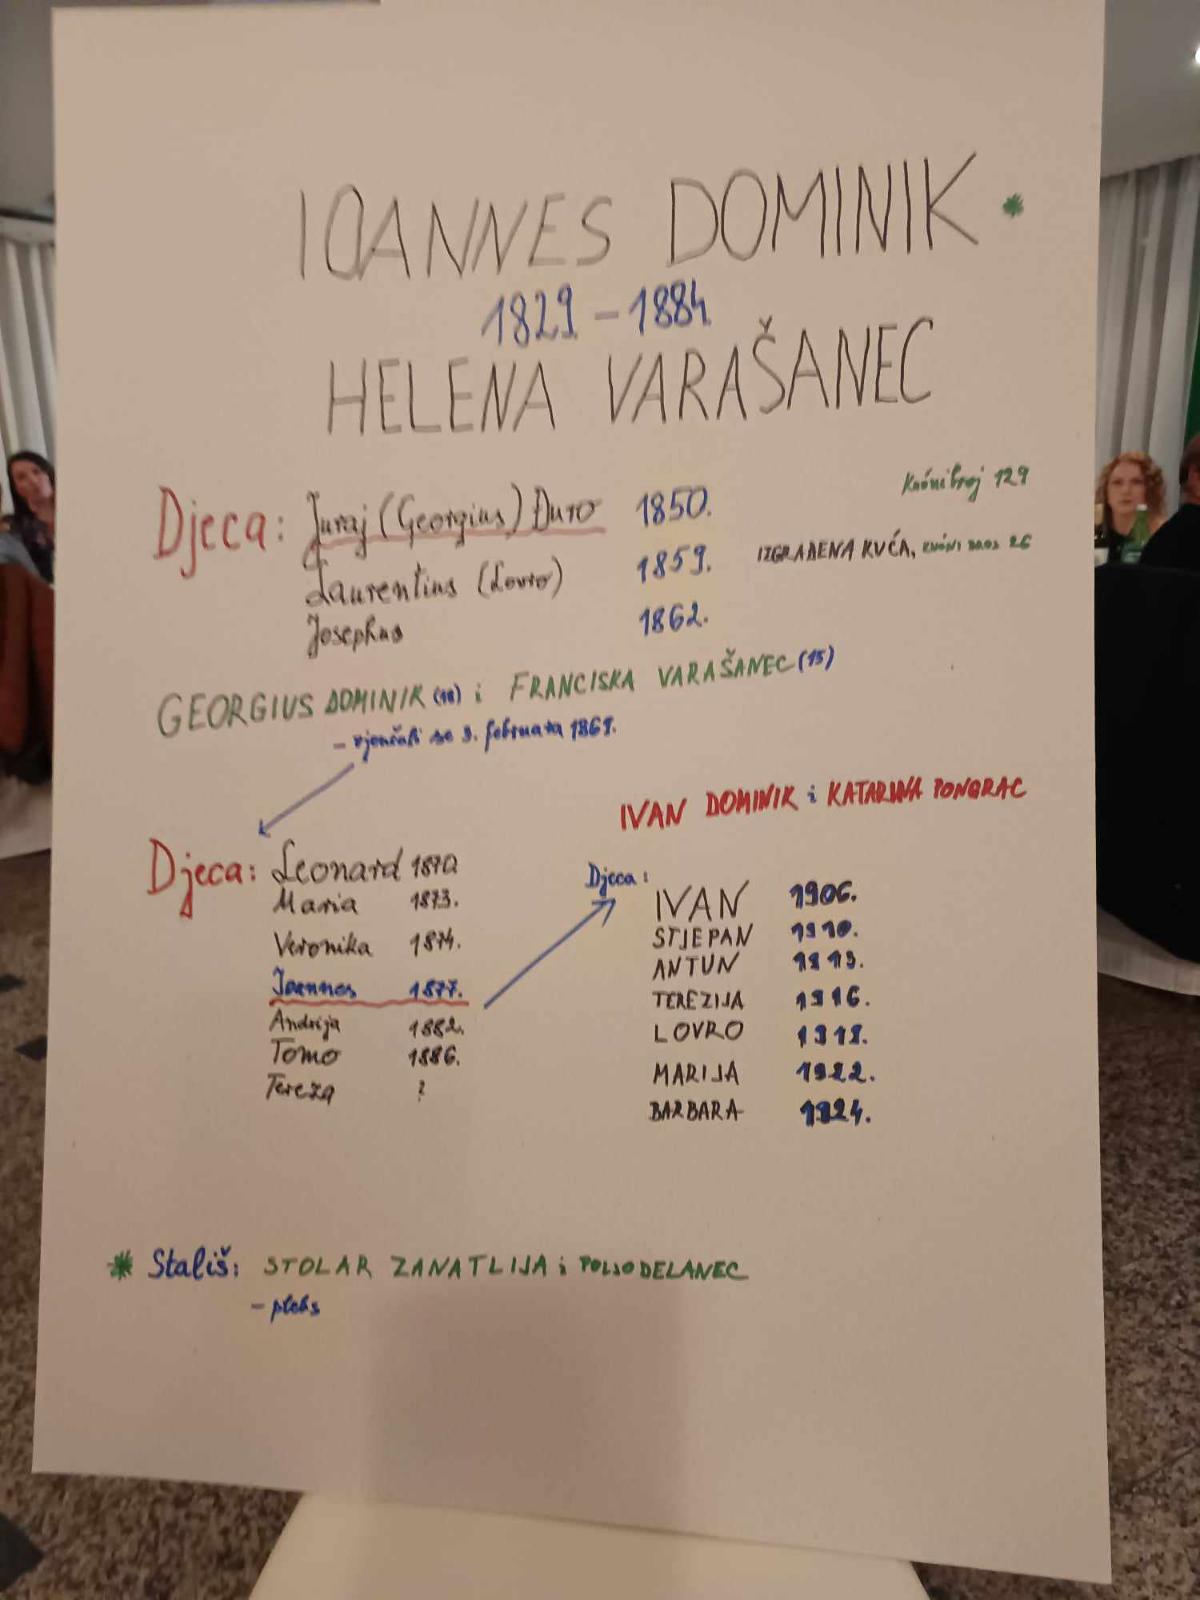 IOANNES DOMINIK *
1829 – 1884
HELENA VARAŠANEC
Kućni broj 129
Djeca: Juraj (Georgius) Đuro 1850.
Laurentius (Lovro) 1859. IZGRAĐENA KUĆA, KUĆNI BROJ 26
Josephus 1862.
GEORGIUS DOMINIK (18) i FRANCISKA VARAŠANEC (15)
– vjenčali se 3. februara 1869.
IVAN DOMINIK i KATARINA PONGRAC
Djeca: Leonard 1870
Maria 1873.
Veronika 1874.
Joannes 1877.
Andrija 1882.
Tomo 1886.
Tereza ?
Djeca:
IVAN 1906.
STJEPAN 1910.
ANTUN 1913.
TEREZIJA 1916.
LOVRO 1918.
MARIJA 1922.
BARBARA 1924.
* Stališ: STOLAR ZANATLIJA i POLJODELANEC
– plebs